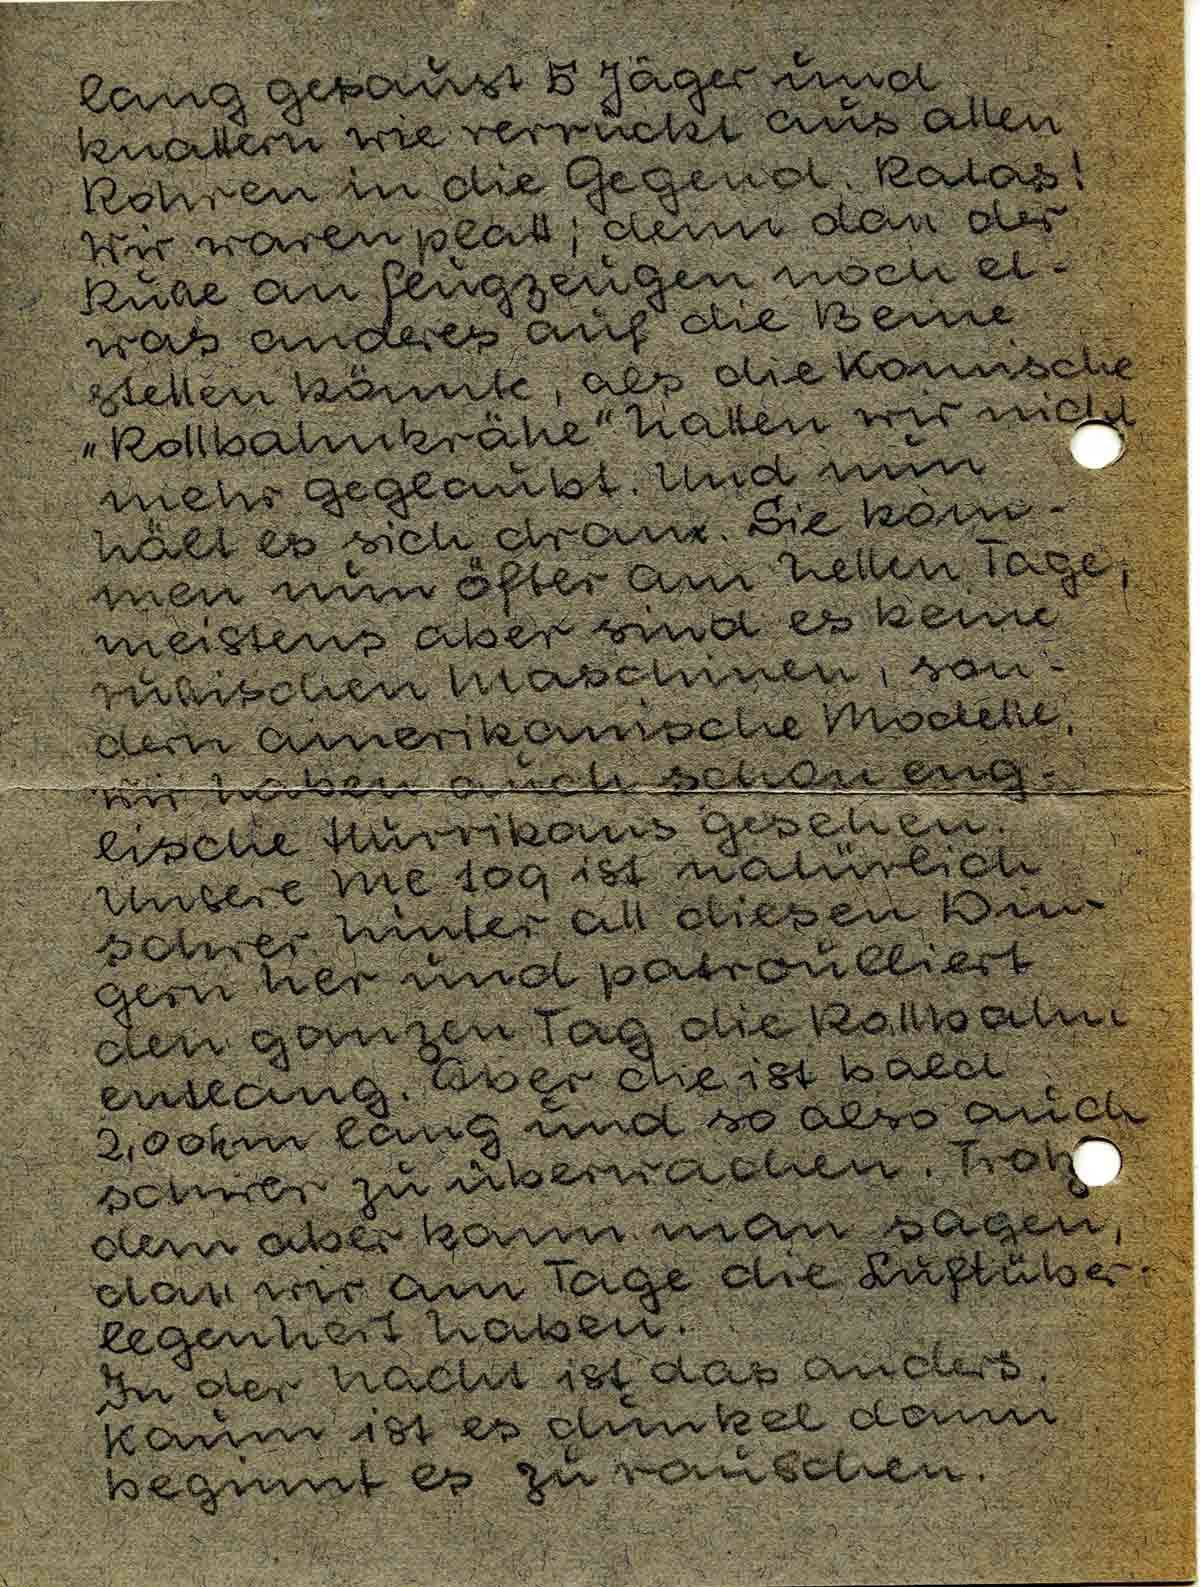 lang gesaust 5 Jäger und
knattern wie verrückt aus allen
Rohren in die Gegend. Ratas!
Wir waren platt; denn daß der
Ruße an Fleugzeugen noch et-
was anderes auf die Beine
stellen könnte, als die komische
„Rollbahnkrähe" hatten wir nicht
mehr geglaubt. Und nun
hält es sich dran. Sie kom-
men nun öfter am hellen Tage,
meistens aber sind es keine
rußischen Maschinen, son-
dern amerikanische Modelle.
Wir haben auch schon eng-
lische Hurrikans gesehen.
Unsere Me 109 ist natürlich
schwer hinter all diesen Din-
gern her und patroulliert
den ganzen Tag die Rollbahn
entlang. Aber die ist bald
2,00km lang und so also auch
schwer zu überwachen. Trotz
dem aber kann man sagen,
daß wir am Tage die Luftüber-
legenheit haben.
In der Nacht ist das anders.
Kaum ist es dunkel dann
beginnt es zu rauschen.